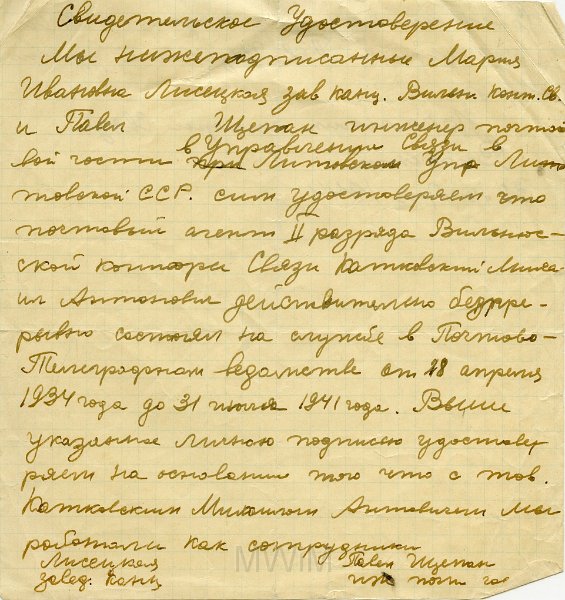 Свидетельское Удостоверение
Мы нижеподписанные Мария
Ивановна Лисецкая зав канц. Вильн. конт. Св.
и Павел Щепан инженер почто
в Управлении Связи в
вой части при Литовском Упр Лит
товской ССР. сим удостоверяем что
почтовый агент II разряда Вильнюс-
ской конторы Связи Катковский Миха
ил Антонович действительно беспре-
рывно состоял на службе в Почтово-
Телеграфном ведомстве от 18 апреля
1934 года до 31 июля 1941 года. Выше
указанное личною подписью удостове
ряем на основании того что с тов.
Катковским Михаилом Антовичем мы
работали как сотрудники
Лисецкая Павел Щепан
завед. канц инж почт
MWiM